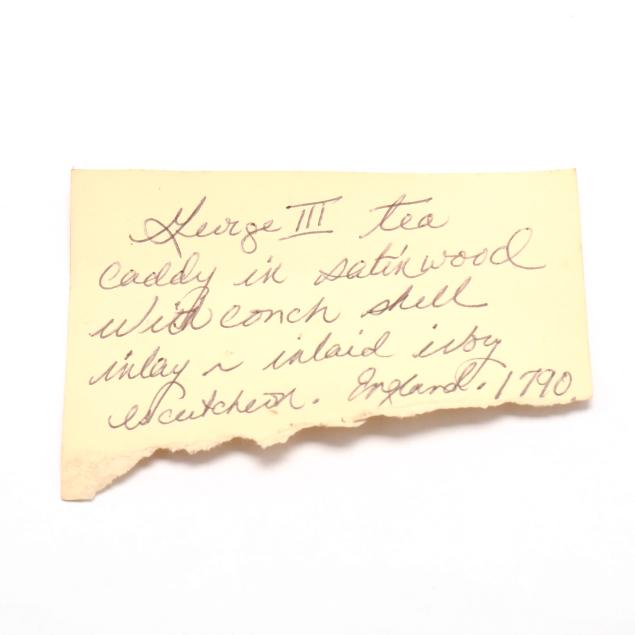 George III tea
caddy in satinwood
with conch shell
inlay ~ inlaid ivory
escutcheon. England. 1790